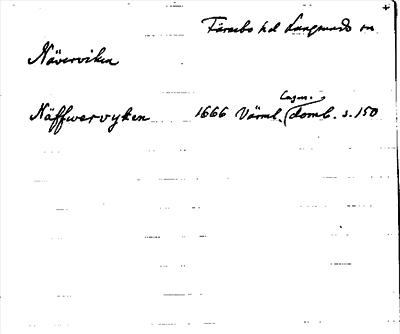 Färnebo hd Långbans sn
Näverviken
Näffwervyken 1666 Värml. Lagm. domb. s. 150